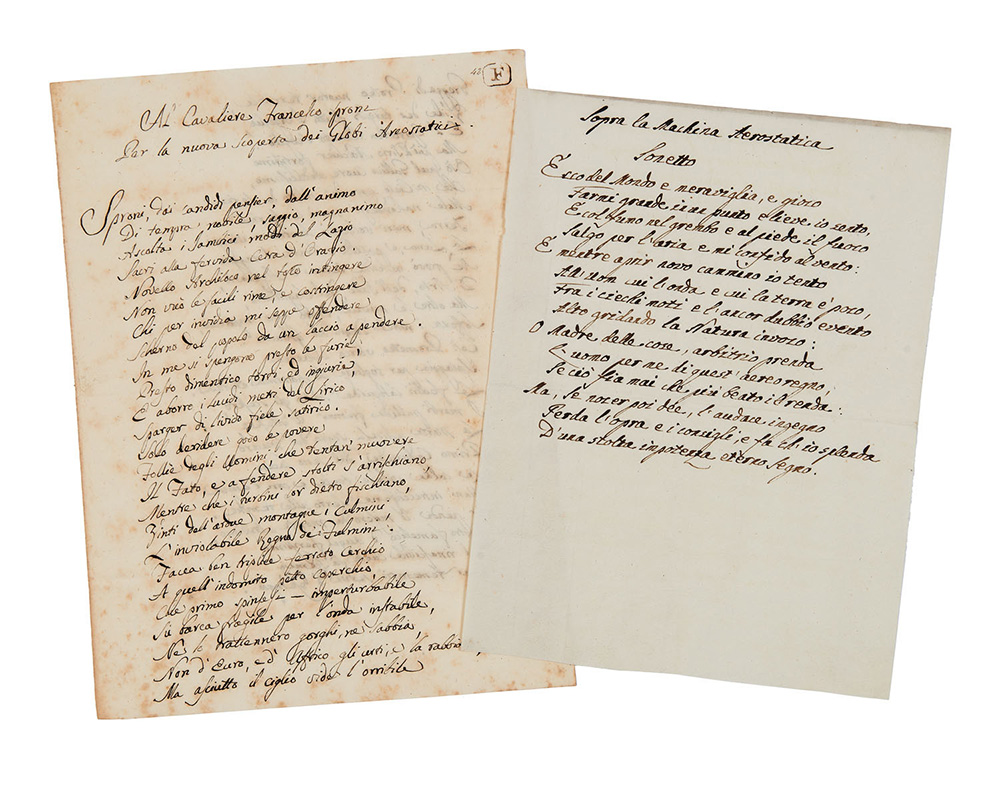 42 F
Al Cavaliere Francesco Sproni
Per la nuova Scoperta dei Globi Areostatici.
Sproni, dai candidi pensier, dall'animo
Di tempra, nobile, saggio, magnanimo
Ascolta i Jambici inediti del Lazio
Sacri alla fervida Cetra d'Orazio.
Novello Archiloco nel fiele intingere
Non vuò le facili rime, e costringere
Chi per invidia mi seppe offendere,
Scherno del popolo da un laccio a pendere.
In me si spengono presto le furie,
Presto dimentico torti, ed ingiurie,
E aborro i laudi metri del Lirico
Sparger di livido fiele satirico.
Solo deridere godo le povere
Follie degli Uomini, che tentan' muovere
Al Fato, e a fendere stolti s'arrischiano,
Mentre che i turbini lor dietro fischiano,
Vinti dell'ardue montagne i Culmini,
L'inviolabile Regno de' Fulmini.
Facea ben triplice ferrato cerchio
A quell'indomito petto coperchio
Che primo spintesi — imperturbabile
Su barca fragile per l'onda instabile,
Nè le trattennero gorghi, nè sabbia,
Non d'Euro, e d'Affrico gli urti, e la rabbia,
Ma asciutto il ciglio vide l'orribile
Sopra la Machina Aerostatica
Sonetto
Esco del Mondo e meraviglia, e gioco
Farmi grande in un punto e lieve io sento,
E col fumo nel grembo e al piede il fuoco
Salgo per l'aria e mi confido al vento:
E mentre aprir novo cammino io tento
All'uom cui l'onda e cui la terra è poco,
Fra i ciechi moti e l'ancor dubbio evento
Alto gridando la Natura invoco:
O Madre delle cose, arbitrio prenda
L'uomo per me di quest' aereo regno,
Se ciò fia mai che più beato il renda:
Ma, se nocer poi dee, l'audace ingegno
Perda l'opra e i consigli, e fa ch'io splenda
D'una stolta impotenza eterno segno.